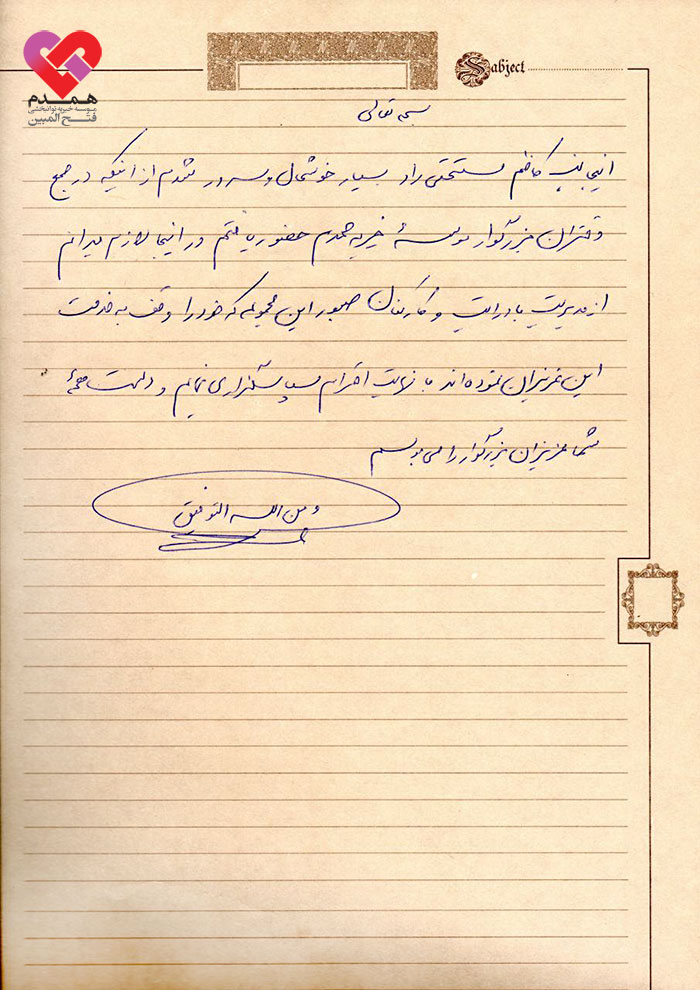 همدم
موسسه خیریه توانبخشی
فتح المبین
Subject
بسمه تعالی
اینجانب کاظم مستحقی راد بسیار خوشحال و مسرور شدم از اینکه در جمع
دختران بزرگوار موسسهٔ خیریه همدم حضور یافتم و در اینجا لازم میدانم
از مدیریت با درایت و کارکنان صبور این مجموعه که خود را وقف به خدمت
این عزیزان نموده اند با نهایت احترام سپاسگزاری نمایم و دست همهٔ
شما عزیزان بزرگوار را می بوسم
و من الله التوفیق